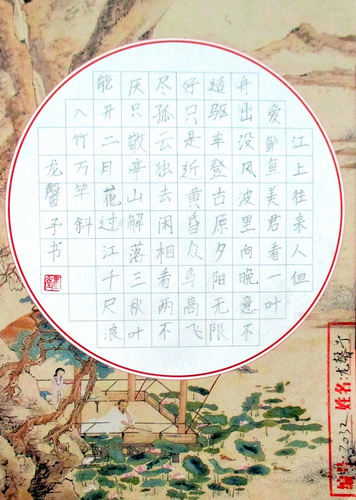 江上往来人但
爱鲈鱼美君看一叶
舟出没风波里向晚意不
适驱车登古原夕阳无限
好只是近黄昏众鸟高飞
尽孤云独去闲相看两不
厌只敬亭山解落三秋叶
能开二月花过江千尺浪
入竹万竿斜
龙馨子书
姓名:龙馨子